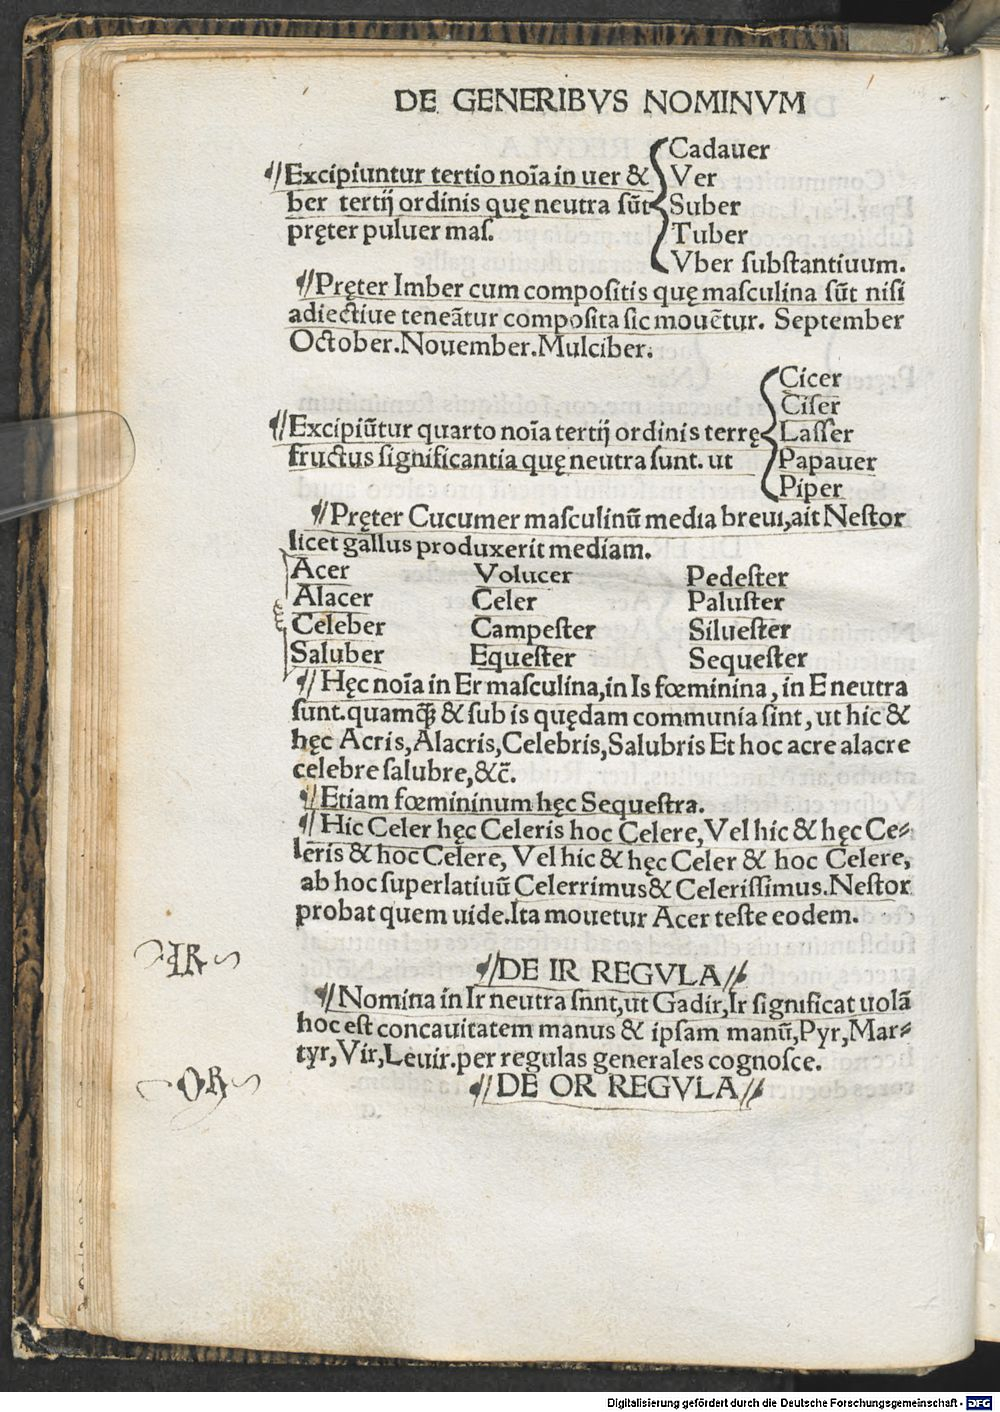 DE GENERIBVS NOMINVM
Excipiuntur tertio noĩa in uer &
ber tertij ordinis quę neutra sũt
pręter puluer mas.
Cadauer
Ver
Suber
Tuber
Vber substantiuum.
Pręter Imber cum compositis quę masculina sũt nisi
adiectiue teneãtur composita sic mouẽtur. September
October.Nouember.Mulciber.
Excipiũtur quarto noĩa tertij ordinis terrę
fructus significantia quę neutra sunt. ut
Cicer
Ciser
Lasser
Papauer
Piper
Pręter Cucumer masculinũ media breui,ait Nestor
licet gallus produxerit mediam.
Acer Volucer Pedester
Alacer Celer Paluster
Celeber Campester Siluester
Saluber Equester Sequester
Hęc noĩa in Er masculina,in Is fœminina, in E neutra
sunt.quamq̃ & sub is quędam communia sint, ut hic &
hęc Acris,Alacris,Celebris,Salubris Et hoc acre alacre
celebre salubre,&c̃.
Etiam fœmininum hęc Sequestra.
Hic Celer hęc Celeris hoc Celere, Vel hic & hęc Ce⸗
leris & hoc Celere, Vel hic & hęc Celer & hoc Celere,
ab hoc superlatiuũ Celerrimus & Celerissimus.Nestor
probat quem uide.Ita mouetur Acer teste eodem.
IR
DE IR REGVLA
Nomina in Ir neutra snnt,ut Gadir,Ir significat uolã
hoc est concauitatem manus & ipsam manũ,Pyr,Mar⸗
tyr,Vir,Leuir.per regulas generales cognosce.
OR
DE OR REGVLA
Digitalisierung gefördert durch die Deutsche Forschungsgemeinschaft - DFG